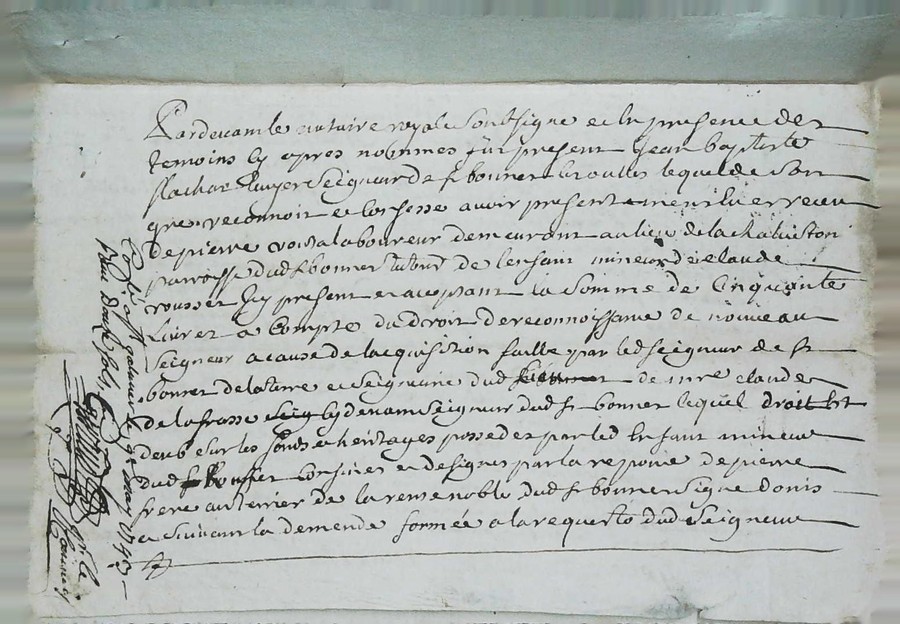 Pardevant le notaire royal soubsigne et en presence des
temoins cy apres nommes fut present Jean baptiste
flachat Escuyer Seigneur de st bonnet les oulles lequel de son
gre reconnoit et confesse avoir presentement eu et receu
de pierre laboureur demeurant au lieu de la
parroisse dud st bonnet tuteur de lenfant mineur de claude
rousset Icy present et acceptant la somme de Cinquante
livres a compte du droit de reconnoissance de nouveau
Seigneur a cause de lacquisition faitte par led seigneur de st
bonnet de la terre et Seigneurie dud de mre claude
de la frasse cy devant Seigneur dud st bonnet lequel droit Est
deub sur les fonds et heritages possedes par led Enfant mineur
dud Rousset Confines et designes par la reponse de pierre
frere au terrier de la rente noble dud st bonnet signe
et suivant la demende formée a la requeste dud Seigneur
Controllé a le 9e may 1743
douze sols